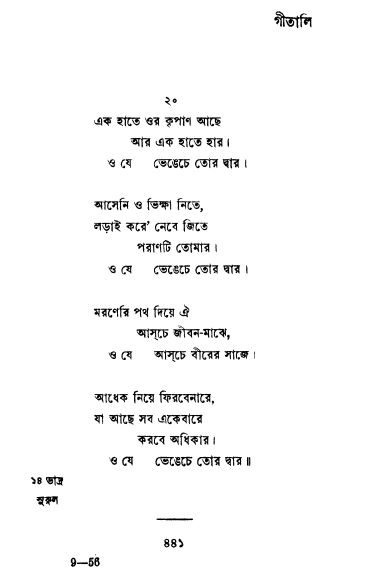 গীতালি
২০
এক হাতে ওর কৃপাণ আছে
আর এক হাতে হার।
ও যে ভেঙেচে তোর দ্বার।
আসেনি ও ভিক্ষা নিতে,
লড়াই করে' নেবে জিতে
পরাণটি তোমার।
ও যে ভেঙেচে তোর দ্বার।
মরণেরি পথ দিয়ে ঐ
আস্‌চে জীবন-মাঝে,
ও যে আস্‌চে বীরের সাজে।
আধেক নিয়ে ফিরবেনারে,
যা আছে সব একেবারে
করবে অধিকার।
ও যে ভেঙেচে তোর দ্বার॥
১৪ ভাদ্র
সুরুল
৪৪১
9—56